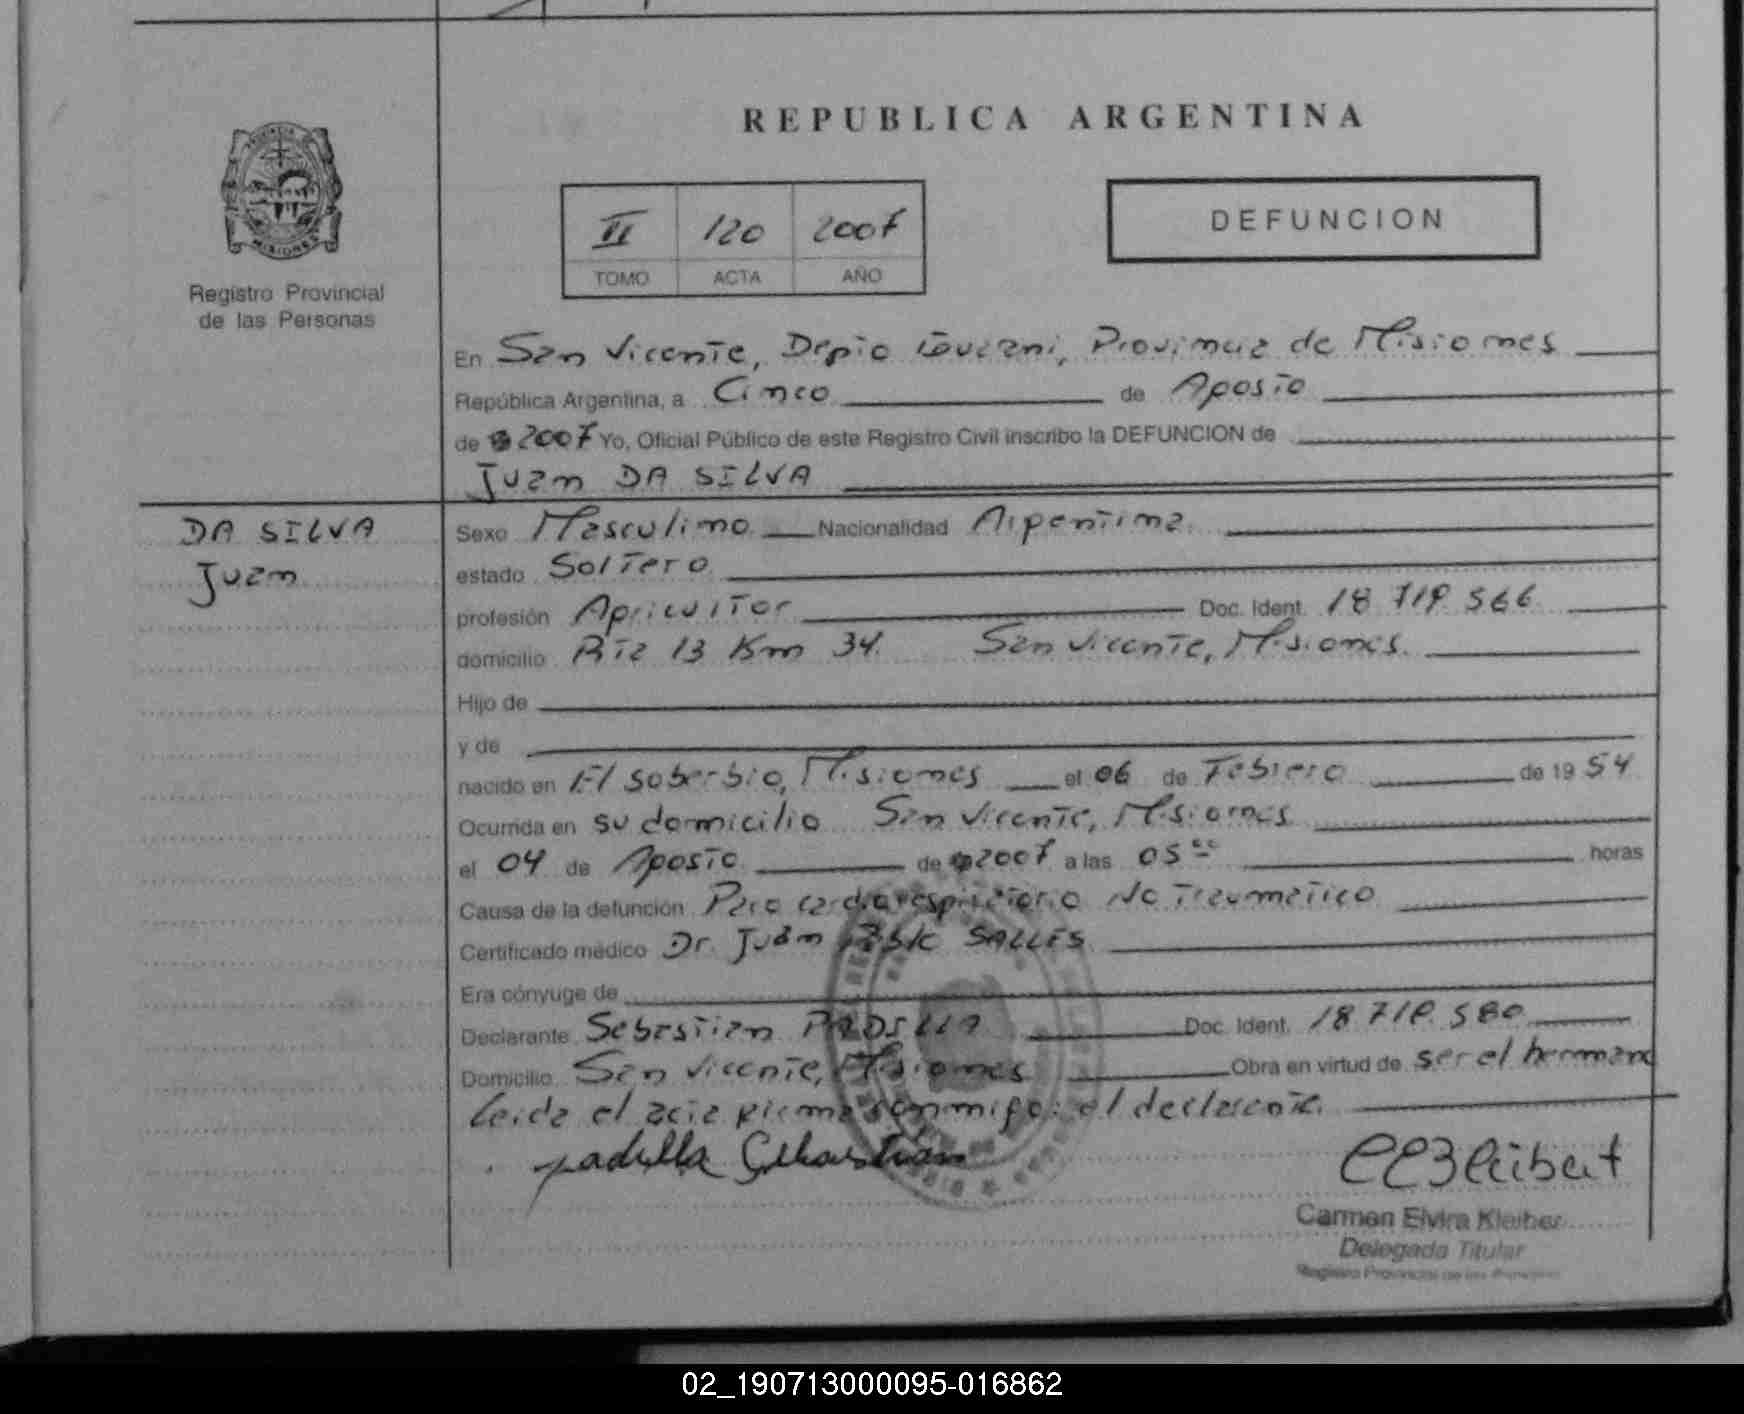 REPUBLICA ARGENTINA
MISIONES
Registro Provincial
de las Personas
II 120 2007
TOMO ACTA AÑO
DEFUNCION
En San Vicente, Depto Guarani, Provincia de Misiones
República Argentina, a Cinco de Agosto
de 2007 Yo, Oficial Público de este Registro Civil inscribo la DEFUNCION de
Juan DA SILVA
DA SILVA
Juan
Sexo Masculino Nacionalidad Argentina
estado Soltero
profesión Agricultor Doc. Ident. 18 719 566
domicilio Rta 13 Km 34. San Vicente, Misiones.
Hijo de
y de
nacido en El Soberbio, Misiones el 06 de Febrero de 19 54
Ocurrida en su domicilio San Vicente, Misiones
el 04 de Agosto de 2007 a las 05 horas
Causa de la defunción Paro cardiorespiratorio No Traumatico
Certificado médico Dr. Juan SALLES
Era cónyuge de
Declarante Sebastian PADILLA Doc. Ident. 18 719 580
Domicilio San Vicente, Misiones Obra en virtud de ser el hermano
Leida el acta firma conmigo: el declarante.
Padilla Sebastian
Carmen Elvira Kleiber
Delegada Titular
Registro Provincial de las Personas
02_190713000095-016862